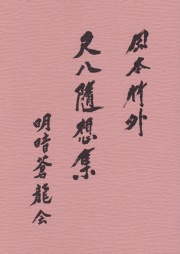 岡本竹外
尺八随想集
明暗蒼龍会